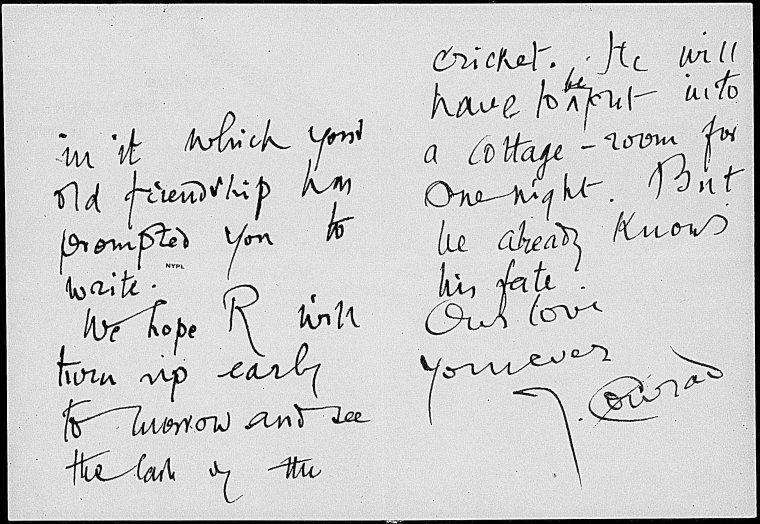 in it which your
old friendship has
prompted you to
NYPL
write.
We hope R will
turn up early
to morrow and see
the last of the
cricket. He will
have to be put into
a cottage-room for
one night. But
he already knows
his fate.
Our love
Yours ever
J. Conrad